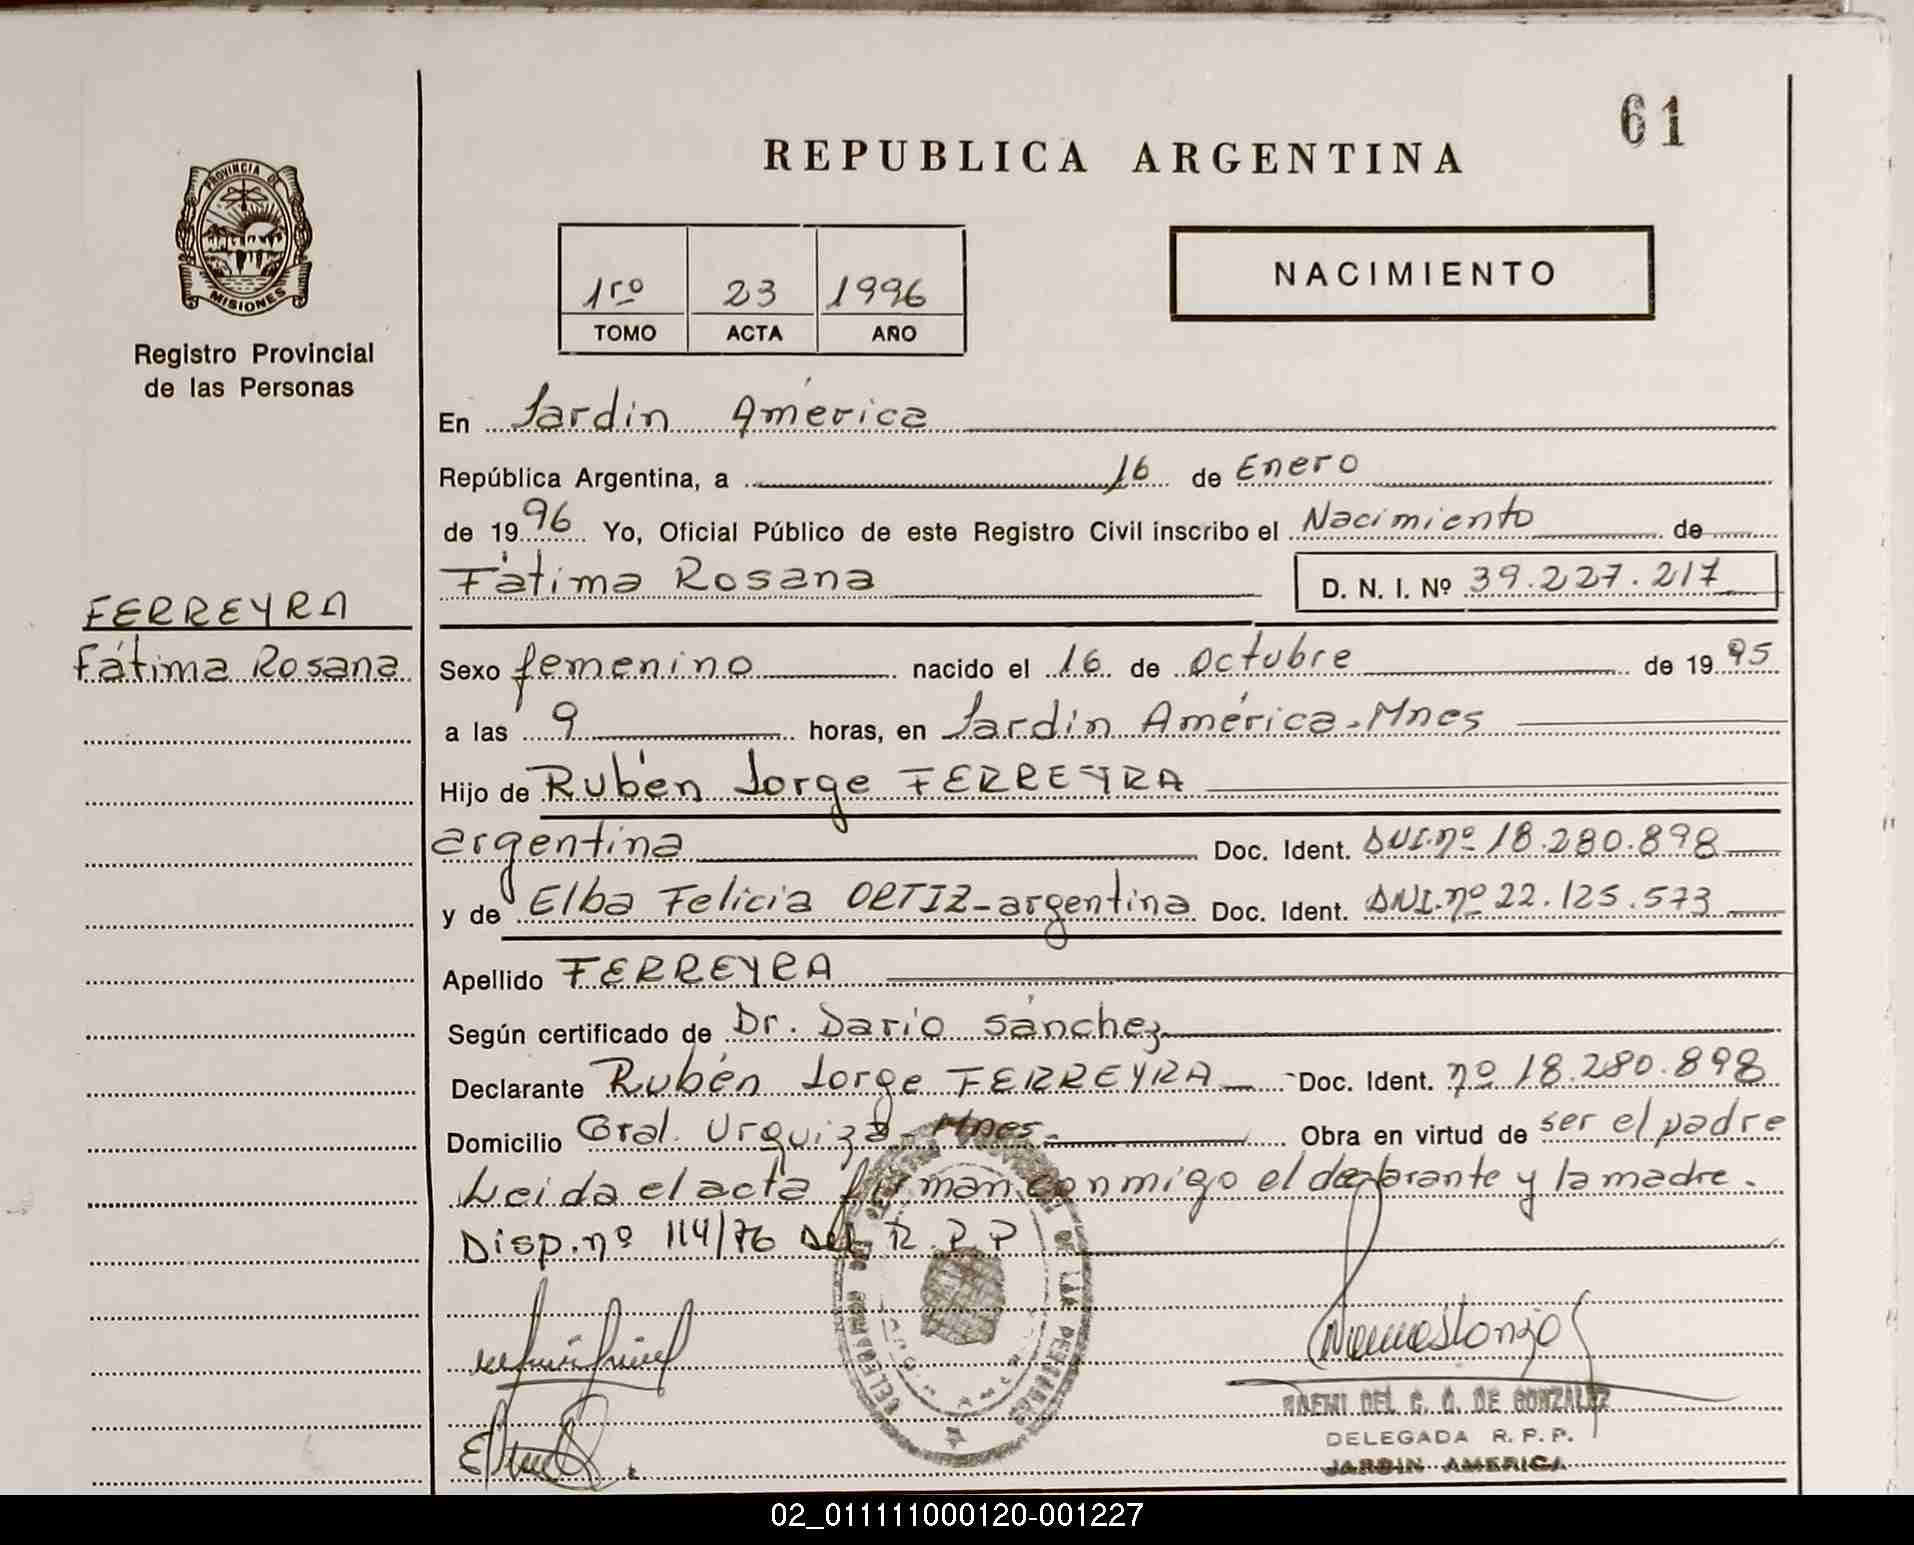 61
REPUBLICA ARGENTINA
PROVINCIA DE
MISIONES
Registro Provincial
de las Personas
1ro 23 1996
TOMO ACTA AÑO
NACIMIENTO
En Jardín América
República Argentina, a 16 de Enero
de 1996 Yo, Oficial Público de este Registro Civil inscribo el Nacimiento de
Fátima Rosana D. N. I. Nº 39.227.217
FERREYRA
Fátima Rosana
Sexo femenino nacido el 16 de octubre de 1995
a las 9 horas, en Jardín América-Mnes
Hijo de Rubén Jorge FERREYRA
argentina Doc. Ident. DNI.nº 18.280.898
y de Elba Felicia ORTIZ-argentina Doc. Ident. DNI.nº 22.125.573
Apellido FERREYRA
Según certificado de Dr. Darío Sánchez
Declarante Rubén Jorge FERREYRA Doc. Ident. nº 18.280.898
Domicilio Gral. Urquiza-Mnes- Obra en virtud de ser el padre
Leida el acta firman conmigo el declarante y la madre.
Disp. nº 114/76 Del R.P.P
DEL C. G. DE GONZALEZ
DELEGADA R. P. P.
JARDIN AMERICA
02_011111000120-001227